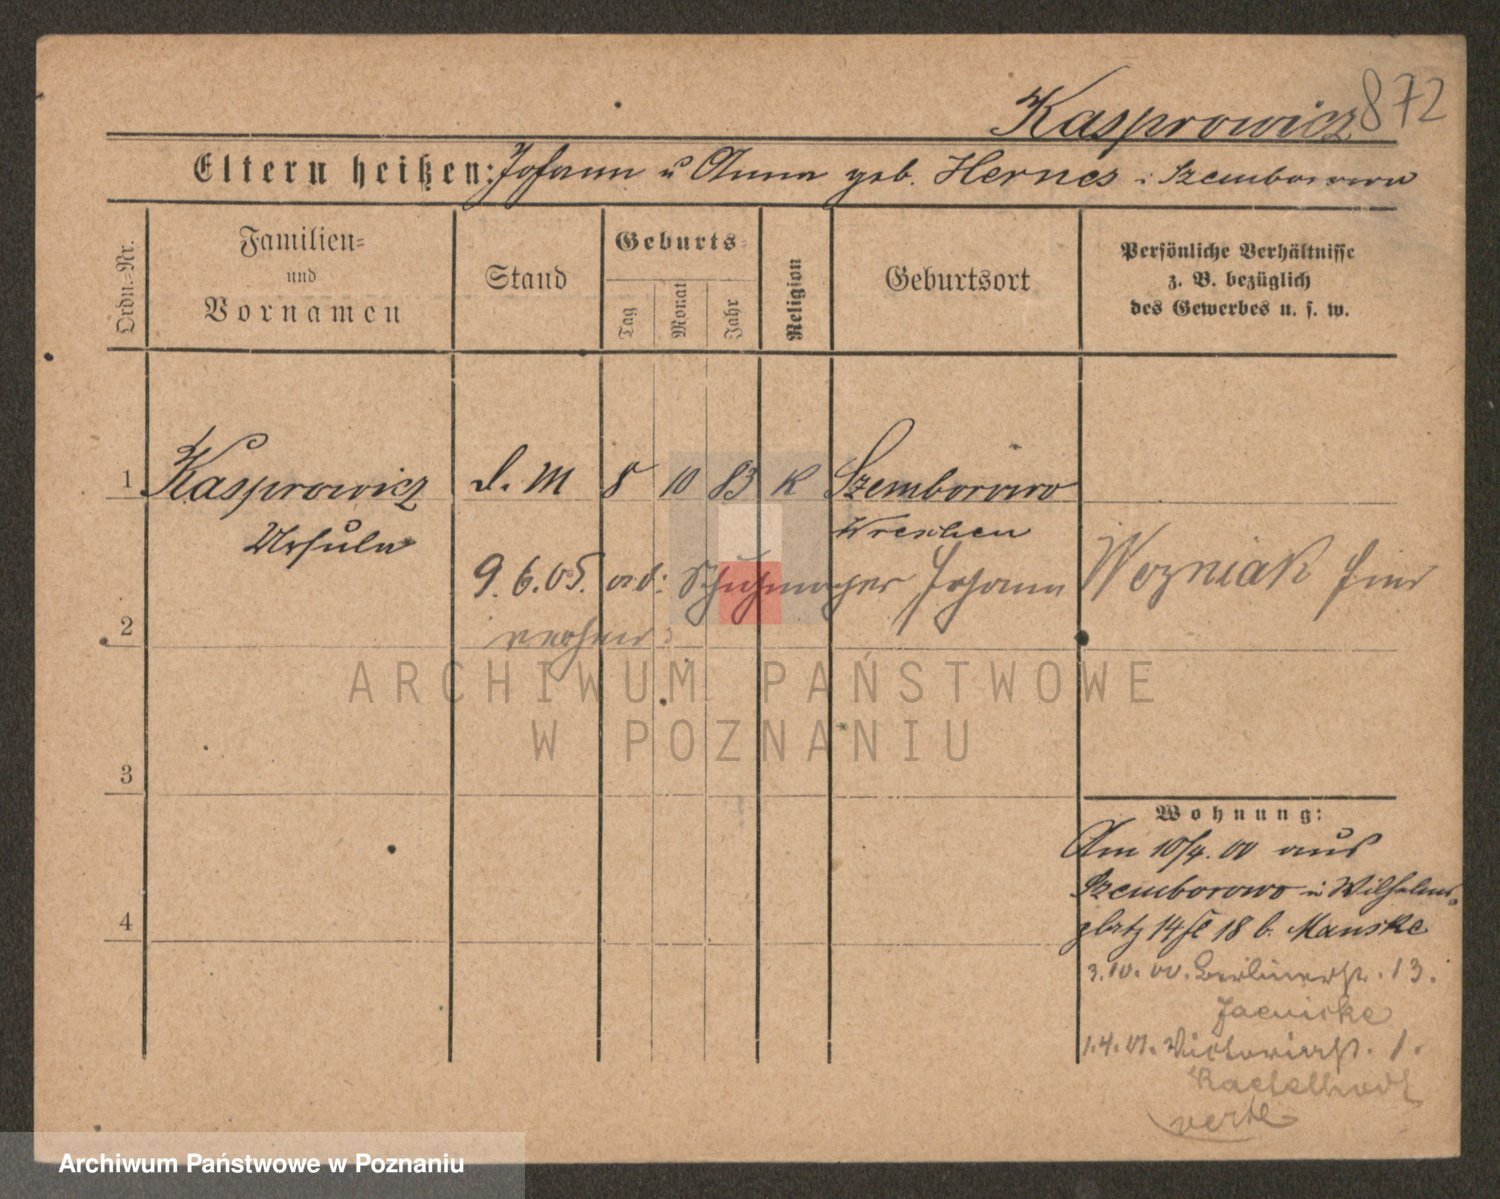 Kasprowicz 872
Eltern heißen: Johann u Anna geb. Hernes i. Szemborowo
Ordn.-Nr.
Familien-
und
Vornamen
Stand
Geburts-
Tag
Monat
Jahr
Religion
Geburtsort
Persönliche Verhältnisse
z. B. bezüglich
des Gewerbes u. s. w.
1 Kasprowicz d. M 8 10 83 K Szemborowo
Ursula Wreschen
9.6.05. Schuhmacher Johann Wozniak hier
2
verheir:
ARCHIWUM PAŃSTWOWE
W POZNANIU
3
Wohnung:
Am 10/4. 00 aus
Szemborowo in Wilhelms-
platz 14 18 b. Manske
4
3.10.00. Berlinerstr. 13.
Jaenicke
1.4.01. Victoriastr. 1.
verte
Archiwum Państwowe w Poznaniu